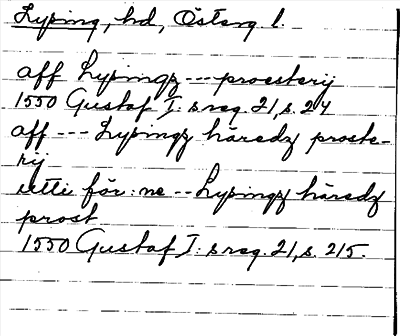 Lysing, hd, Österg. l.
aff Lysingz --- proesterij
1550 Gustaf I: s reg. 21, s. 24
aff --- Lysingz häredz proste-
rij
utti för:ne -- Lysingz häredz
prost
1550 Gustaf I: s reg. 21, s. 215.